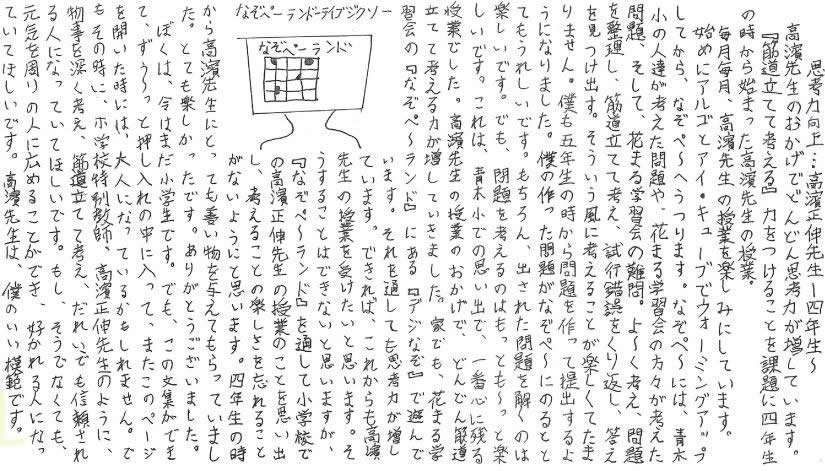 思考力向上…高濱正伸先生ー四年生〜
高濱先生のおかげで、どんどん思考力が増しています。
『筋道立てて考える』力をつけることを課題に四年生
の時から始まった高濱先生の授業。
毎月毎月、高濱先生の授業を楽しみにしています。
始めにアルゴとアイ・キューブでウォーミングアップ
してから、なぞぺ〜へうつります。なぞぺ〜には、青木
小の人達が考えた問題や、花まる学習会の方々が考えた
問題、そして、花まる学習会の難問。よ〜く考え、問題
を整理し、筋道立てて考え、試行錯誤をくり返し、答え
を見つけ出す。そういう風に考えることが楽しくてたま
りません。僕も五年生の時から問題を作って提出するよ
うになりました。僕の作った問題がなぞぺ〜にのるとと
てもうれしいです。もちろん、出された問題を解くのは
楽しいです。でも、問題を考えるのはもっとも〜っと楽
しいです。これは、青木小での思い出で、一番心に残る
授業でした。高濱先生の授業のおかげで、どんどん筋道
立てて考える力が増していきました。家でも、花まる学
習会の『なぞぺ〜ランド』にある『デジなぞ』で遊んで
います。それを通しても思考力が増し
ています。できれば、これからも高濱
先生の授業を受けたいと思います。そ
うすることはできないと思いますが、
『なぞぺ〜ランド』を通して小学校で
の高濱正伸先生の授業のことを思い出
し、考えることの楽しさを忘れること
がないようにと思います。四年生の時
なぞペーランドーライブジクソー
なぞペーランド
から高濱先生にとても善い物を与えてもらっていまし
た。とても楽しかったです。ありがとうございました。
ぼくは、今はまだ小学生です。でも、この文集ができ
て、ずぅ〜っと押し入れの中に入って、またこのページ
を開いた時には、大人になっているかもしれません。で
もその時に、小学校特別教師、高濱正伸先生のように、
物事を深く考え、筋道立てて考え、だれにでも信頼され
る人になっていてほしいです。もし、そうでなくても、
元気を周りの人に広めることができ、好かれる人になっ
ていてほしいです。高濱先生は、僕のいい模範です。